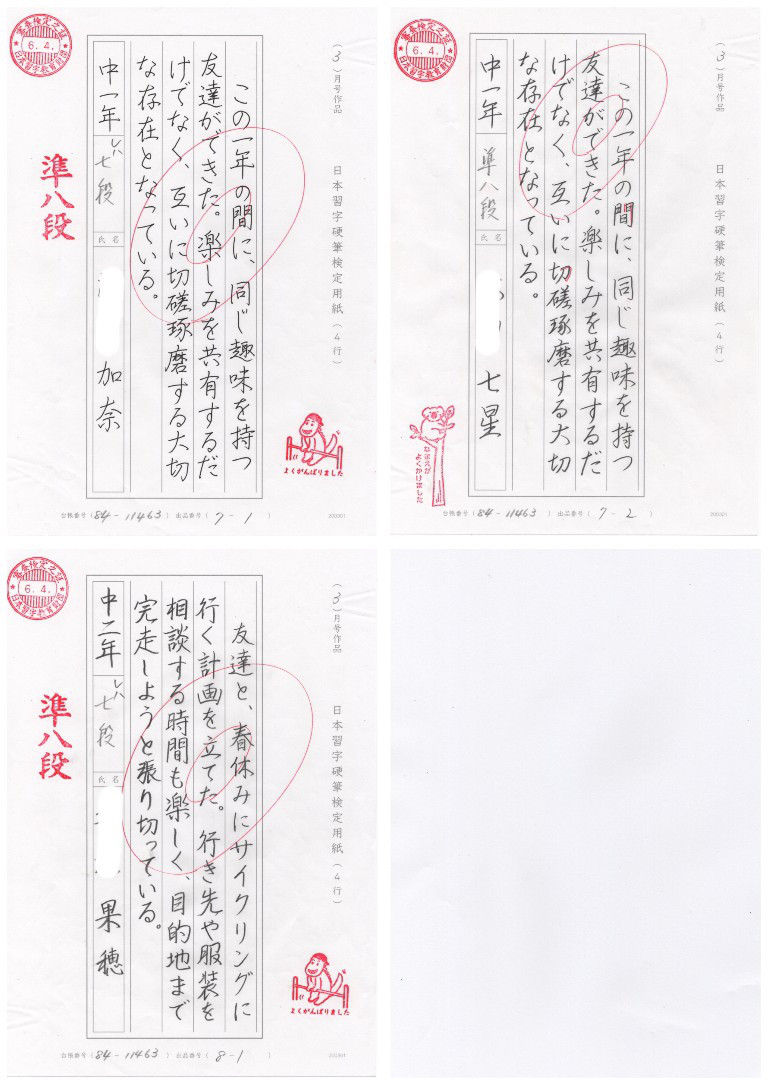 (3)月号作品
日本習字硬筆検定用紙(4行)
この一年の間に、同じ趣味を持つ
友達ができた。楽しみを共有するだ
けでなく、互いに切磋琢磨する大切
な存在となっている。
中一年
七段
氏名
加奈
審査検定之証
6.4.
日本習字教育財団
準八段
よくがんばりました
台帳番号(84-11463) 出品番号(7-1)
200301
(3)月号作品
日本習字硬筆検定用紙(4行)
この一年の間に、同じ趣味を持つ
友達ができた。楽しみを共有するだ
けでなく、互いに切磋琢磨する大切
な存在となっている。
中一年
準八段
氏名
七星
審査検定之証
6.4.
日本習字教育財団
なまえが
よくかけました
台帳番号(84-11463) 出品番号(7-2)
200301
(3)月号作品
日本習字硬筆検定用紙(4行)
友達と、春休みにサイクリングに
行く計画を立てた。行き先や服装を
相談する時間も楽しく、目的地まで
完走しようと張り切っている。
中二年
七段
氏名
果穂
審査検定之証
6.4.
日本習字教育財団
準八段
よくがんばりました
台帳番号(84-11463) 出品番号(8-1)
200301